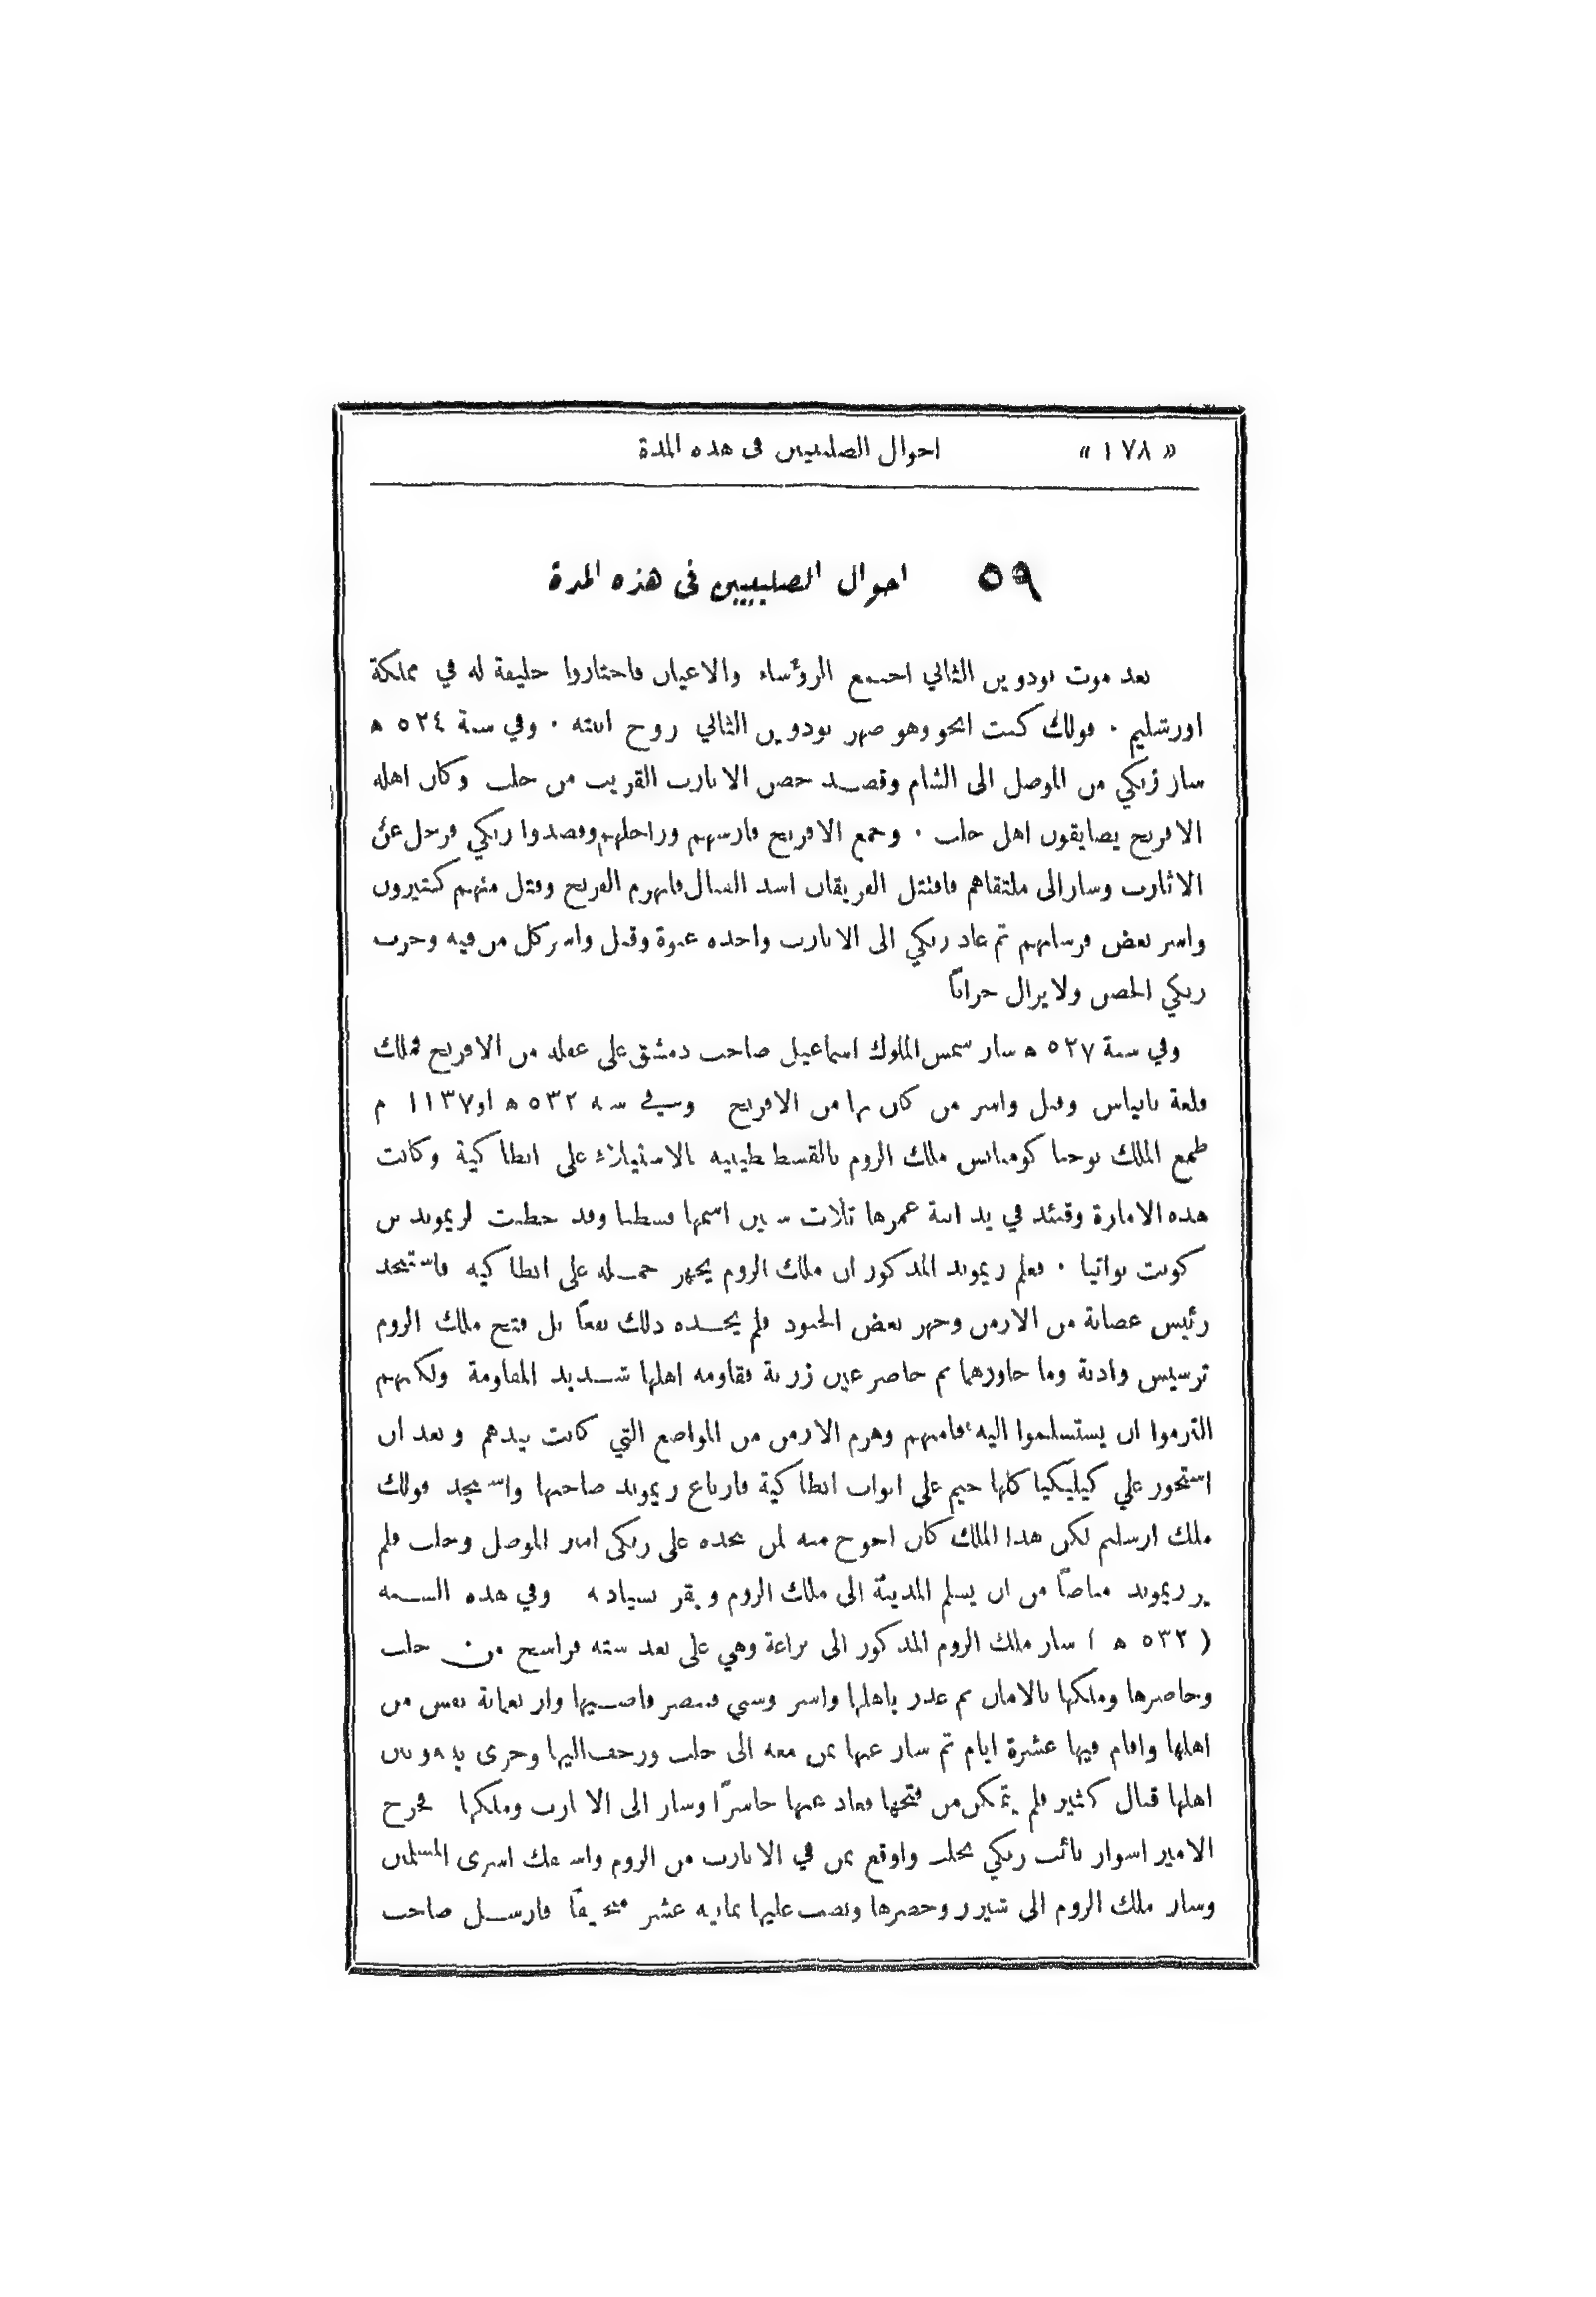 « ١٧٨ » احوال الصليبيين في هذه المدة
٥٩ احوال الصليبيين في هذه المدة
بعد موت بودوين الثاني اجتمع الرؤساء والاعيان فاختاروا خليفة له في مملكة
اورشليم · فولك كنت انجو وهو صهر بودوين الثاني زوج ابنته · وفي سنة ٥٢٤ ه
سار زنكي من الموصل الى الشام وقصد حصن الاثارب القريب من حلب وكان اهله
الافرنج يضايقون اهل حلب · وجمع الافرنج فارسهم وراجلهم وقصدوا زنكي فرحل عن
الاثارب وسار الى ملتقاهم فاقتتل الفريقان اشد القتال فانهزم الفرنج وقتل منهم كثيرون
واسر بعض فرسانهم ثم عاد زنكي الى الاثارب واخذه عنوة وقتل واسر كل من فيه وخرب
زنكي الحصن ولا يزال خراباً
وفي سنة ٥٢٧ ه سار شمس الملوك اسماعيل صاحب دمشق على غفلة من الافرنج فملك
قلعة بانياس وقتل واسر من كان بها من الافرنج وفي سنة ٥٣٢ ه او ١١٣٧ م
طمع الملك يوحنا كومنانس ملك الروم بالقسطنطينية بالاستيلاء على انطاكية وكانت
هذه الامارة وقتئذ في يد ابنة عمرها ثلاث سنين اسمها قسطنسا وقد خطبت لريموند بن
كونت بواتيا · فعلم ريموند المذكور ان ملك الروم يجهز حملة على انطاكية فاستنجد
رئيس عصابة من الارمن وجهز بعض الجنود فلم يجده ذلك نفعاً بل فتح ملك الروم
ترسيس وادنة وما جاورهما ثم حاصر عين زربة فقاومه اهلها شديد المقاومة ولكنهم
التزموا ان يستسلموا اليه فامنهم وهزم الارمن من المواضع التي كانت بيدهم وبعد ان
استحوز علي كيليكيا كلها خيم على ابواب انطاكية فارتاع ريموند صاحبها واستنجد فولك
ملك ارسليم لكن هذا الملك كان احوج منه لمن ينجده على زنكي امير الموصل وحلب فلم
ير ريموند مناصاً من ان يسلم المدينة الى ملك الروم ويقر بسيادته وفي هذه السنة
( ٥٣٢ ه ) سار ملك الروم المذكور الى بزاعة وهي على بعد ستة فراسخ من حلب
وحاصرها وملكها بالامان ثم غدر باهلها واسر وسبى فتنصر قاضيها واربعماية نفس من
اهلها واقام فيها عشرة ايام ثم سار عنها بمن معه الى حلب وزحف اليها وجرى بينه وبين
اهلها قتال كثير فلم يتمكن من فتحها فعاد عنها خاسراً وسار الى الاثارب وملكها فخرج
الامير اسوار نائب زنكي بحلب واوقع بمن في الاثارب من الروم واستفك اسرى المسلمين
وسار ملك الروم الى شيزر وحصرها ونصب عليها ثمانية عشر منجنيقاً فارسل صاحب